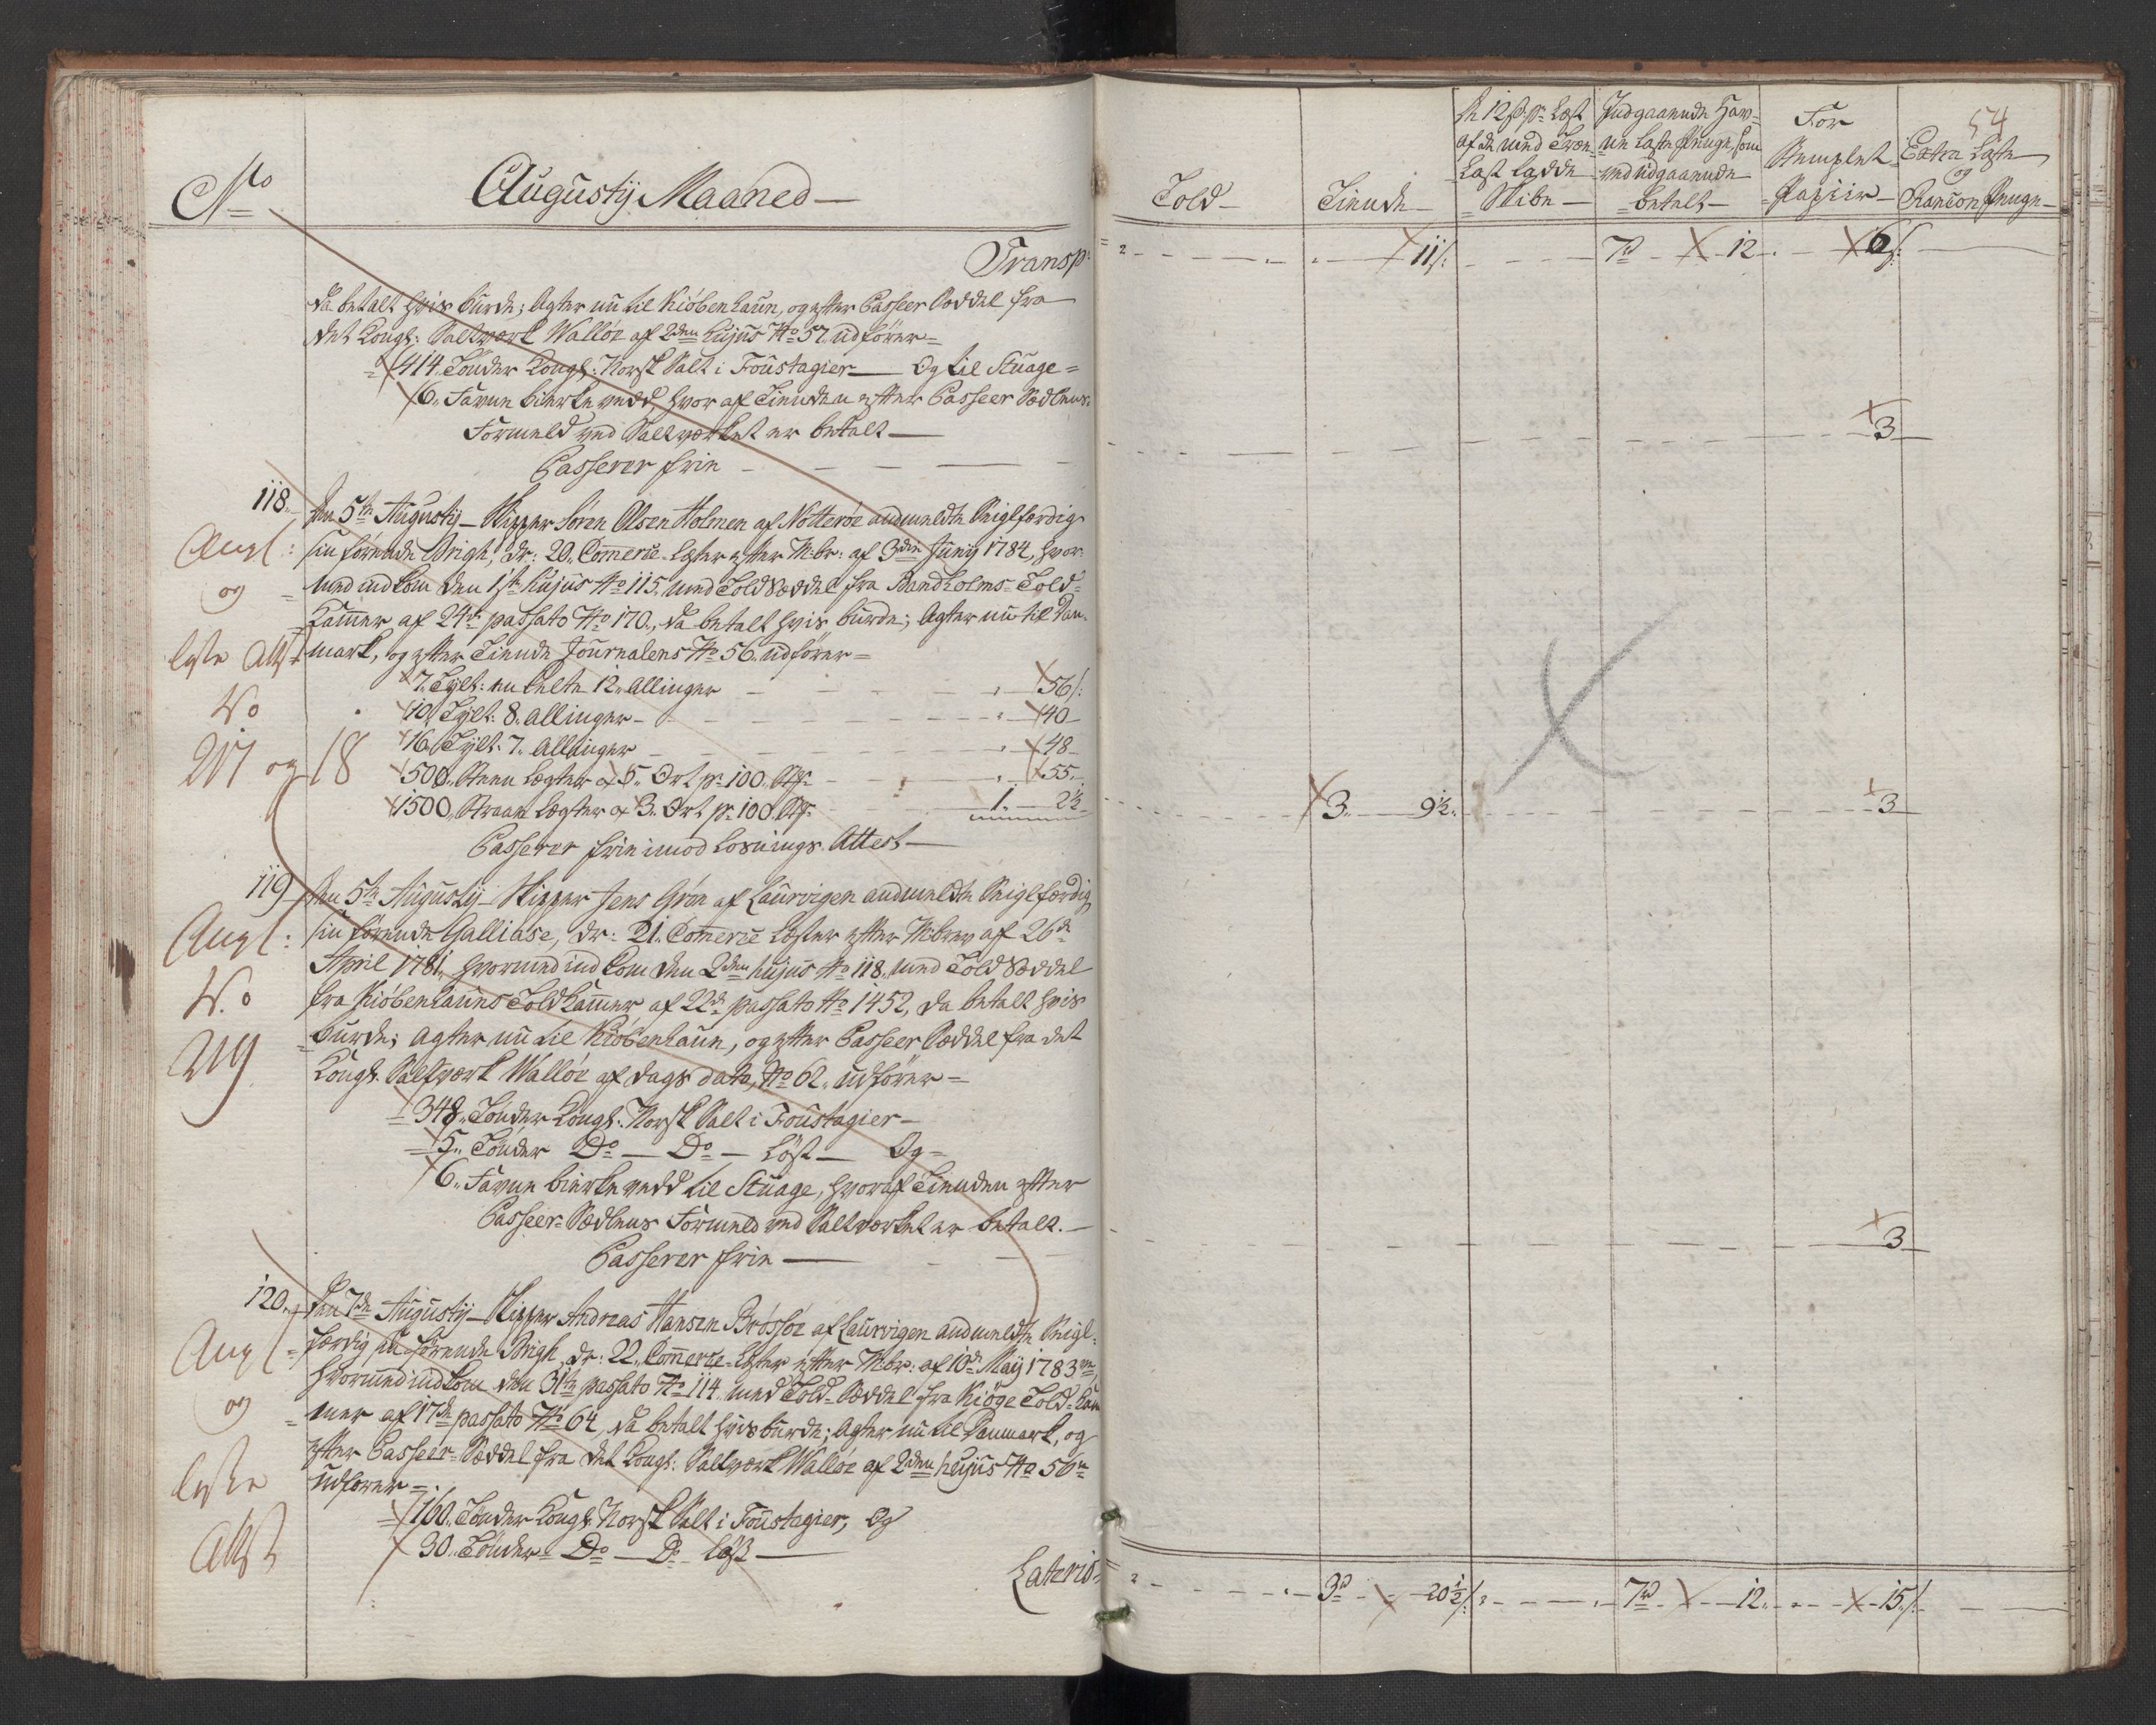 No
Augustij Maaned
Transp:
da betalt hvis burde; Agter nu til Kiöbenhaun, og efter Passeer Sæddel fra
det Kongl: Saltværk Wallöe af 2den hujus No 57 udförer
414 Tönder Kongl: Norsk Salt i Foustagier Og til Stuage
6 Favne birke vedd, hvoraf Tienden efter Passeer Sædlens
Formeld ved Saltværket er betalt
Passerer frie
118. Den 5te Augustij Skipper Sören Olsen Holmen af Nötteröe andmeldte Seiglfærdig
Angl: sin förende Brigh, dr: 20 Commerce Læster efter M:br: af 3die Junij 1784, hvor-
og med indkom den 1ste hujus No 115 med Told Sæddel fra Bandholms Told-
Kammer af 24de passato No 170, da betalt hvis burde; Agter nu til Dan-
læste Att: mark, og efter Tiende Journalens No 56 udförer
7 Tylt: enkelte 12 Allinger 56/:
No 10 Tylt: 8 Allinger 40
217 og 18 16 Tylt: 7 Allinger 48
500 Steen Lægter a 5 Ort pr 100 Stk: 55
1500 Straae Lægter a 3 Ort pr 100 Stk: 1. 2½
Passerer frie imod Losnings Attest
119 Den 5te Augustij Skipper Jens Grön af Laurvigen andmeldte Seiglfærdig
Angl: sin förende Galliase, dr: 21 Comerce Læster efter M:brev af 26de
April 1781, hvormed indkom den 2den hujus No 118 med Told Sæddel
No. fra Kiöbenhauns Told Kammer af 22de passato No 1452, da betalt hvis
219 burde; agter nu til Kiöbenhaun, og efter Passeer Sæddel fra det
Kongl: Saltværk Wallöe af dags dato, No 62 udförer
348 Tönder Kongl: Norsk Salt i Foustagier
5 Tönder Do Do löst Og
6 Favne birke vedd til Stuage, hvoraf Tienden efter
Passeer Sædlens Formeld ved Saltværket er betalt.
Passerer frie
120 Den 7de Augustij Skipper Andreas Hansen Brösöe af Laurvigen andmeldte Seigl-
Angl færdig sin förende Brigh, dr: 22 Commerce Læster efter M:br: af 10de Maij 1783
hvormed indkom den 31te passato No 114 med Told Sæddel fra Kiöge Told Kam
og mer af 17de passato No 64, da betalt hvis burde; Agter nu til Danmark, og
efter Passeer Sæddel fra det Kongl: Saltværk Wallöe af 2den hujus No 56
læste udförer
160 Tönder Kongl: Norsk Salt i Foustagier, Og
Att: 30 Tönder Do Do löst
Lateris
54
Told
Tiende
A 12 s: pr Læst af de med Træ Last ladde Skibe
Indgaaende Hav- ne Laste Penge, som ved udgaaende betalt
For Stemplet Papiir
Extra Laste og Rancon Penge
11/: 7rd 12 6/:
3
3 9½ 3
3
3rd 20½/: 7rd 12 15/: